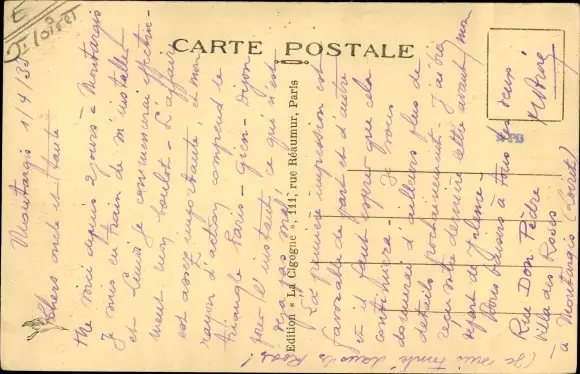 E
Loiret
CARTE POSTALE
Edition « La Cigogne », 111, rue Réaumur, Paris
APB
Montargis 1/4/35
Chers oncle et tante
Me voici depuis 2 jours à Montargis
Je suis en train de m'installer
et lundi je commencerai effective-
ment mon boulot. L'affaire
est assez importante, et mon
rayon d'action comprend le
triangle Paris - Gien - Dijon
pour l'instant ce qui n'est
déjà pas mal.
La première impression est
favorable de part et d'autre
et il faut espérer que cela
continuera. Je vous
donnerai d'ailleurs plus de
détails prochainement. J'ai bien
reçu votre dernière lettre avant mon
départ de
Bons baisers à tous les deux
André
Rue Don Pèdre
Villa des Roses
à Montargis (Loiret)
(Je suis tombé dans les Roses!